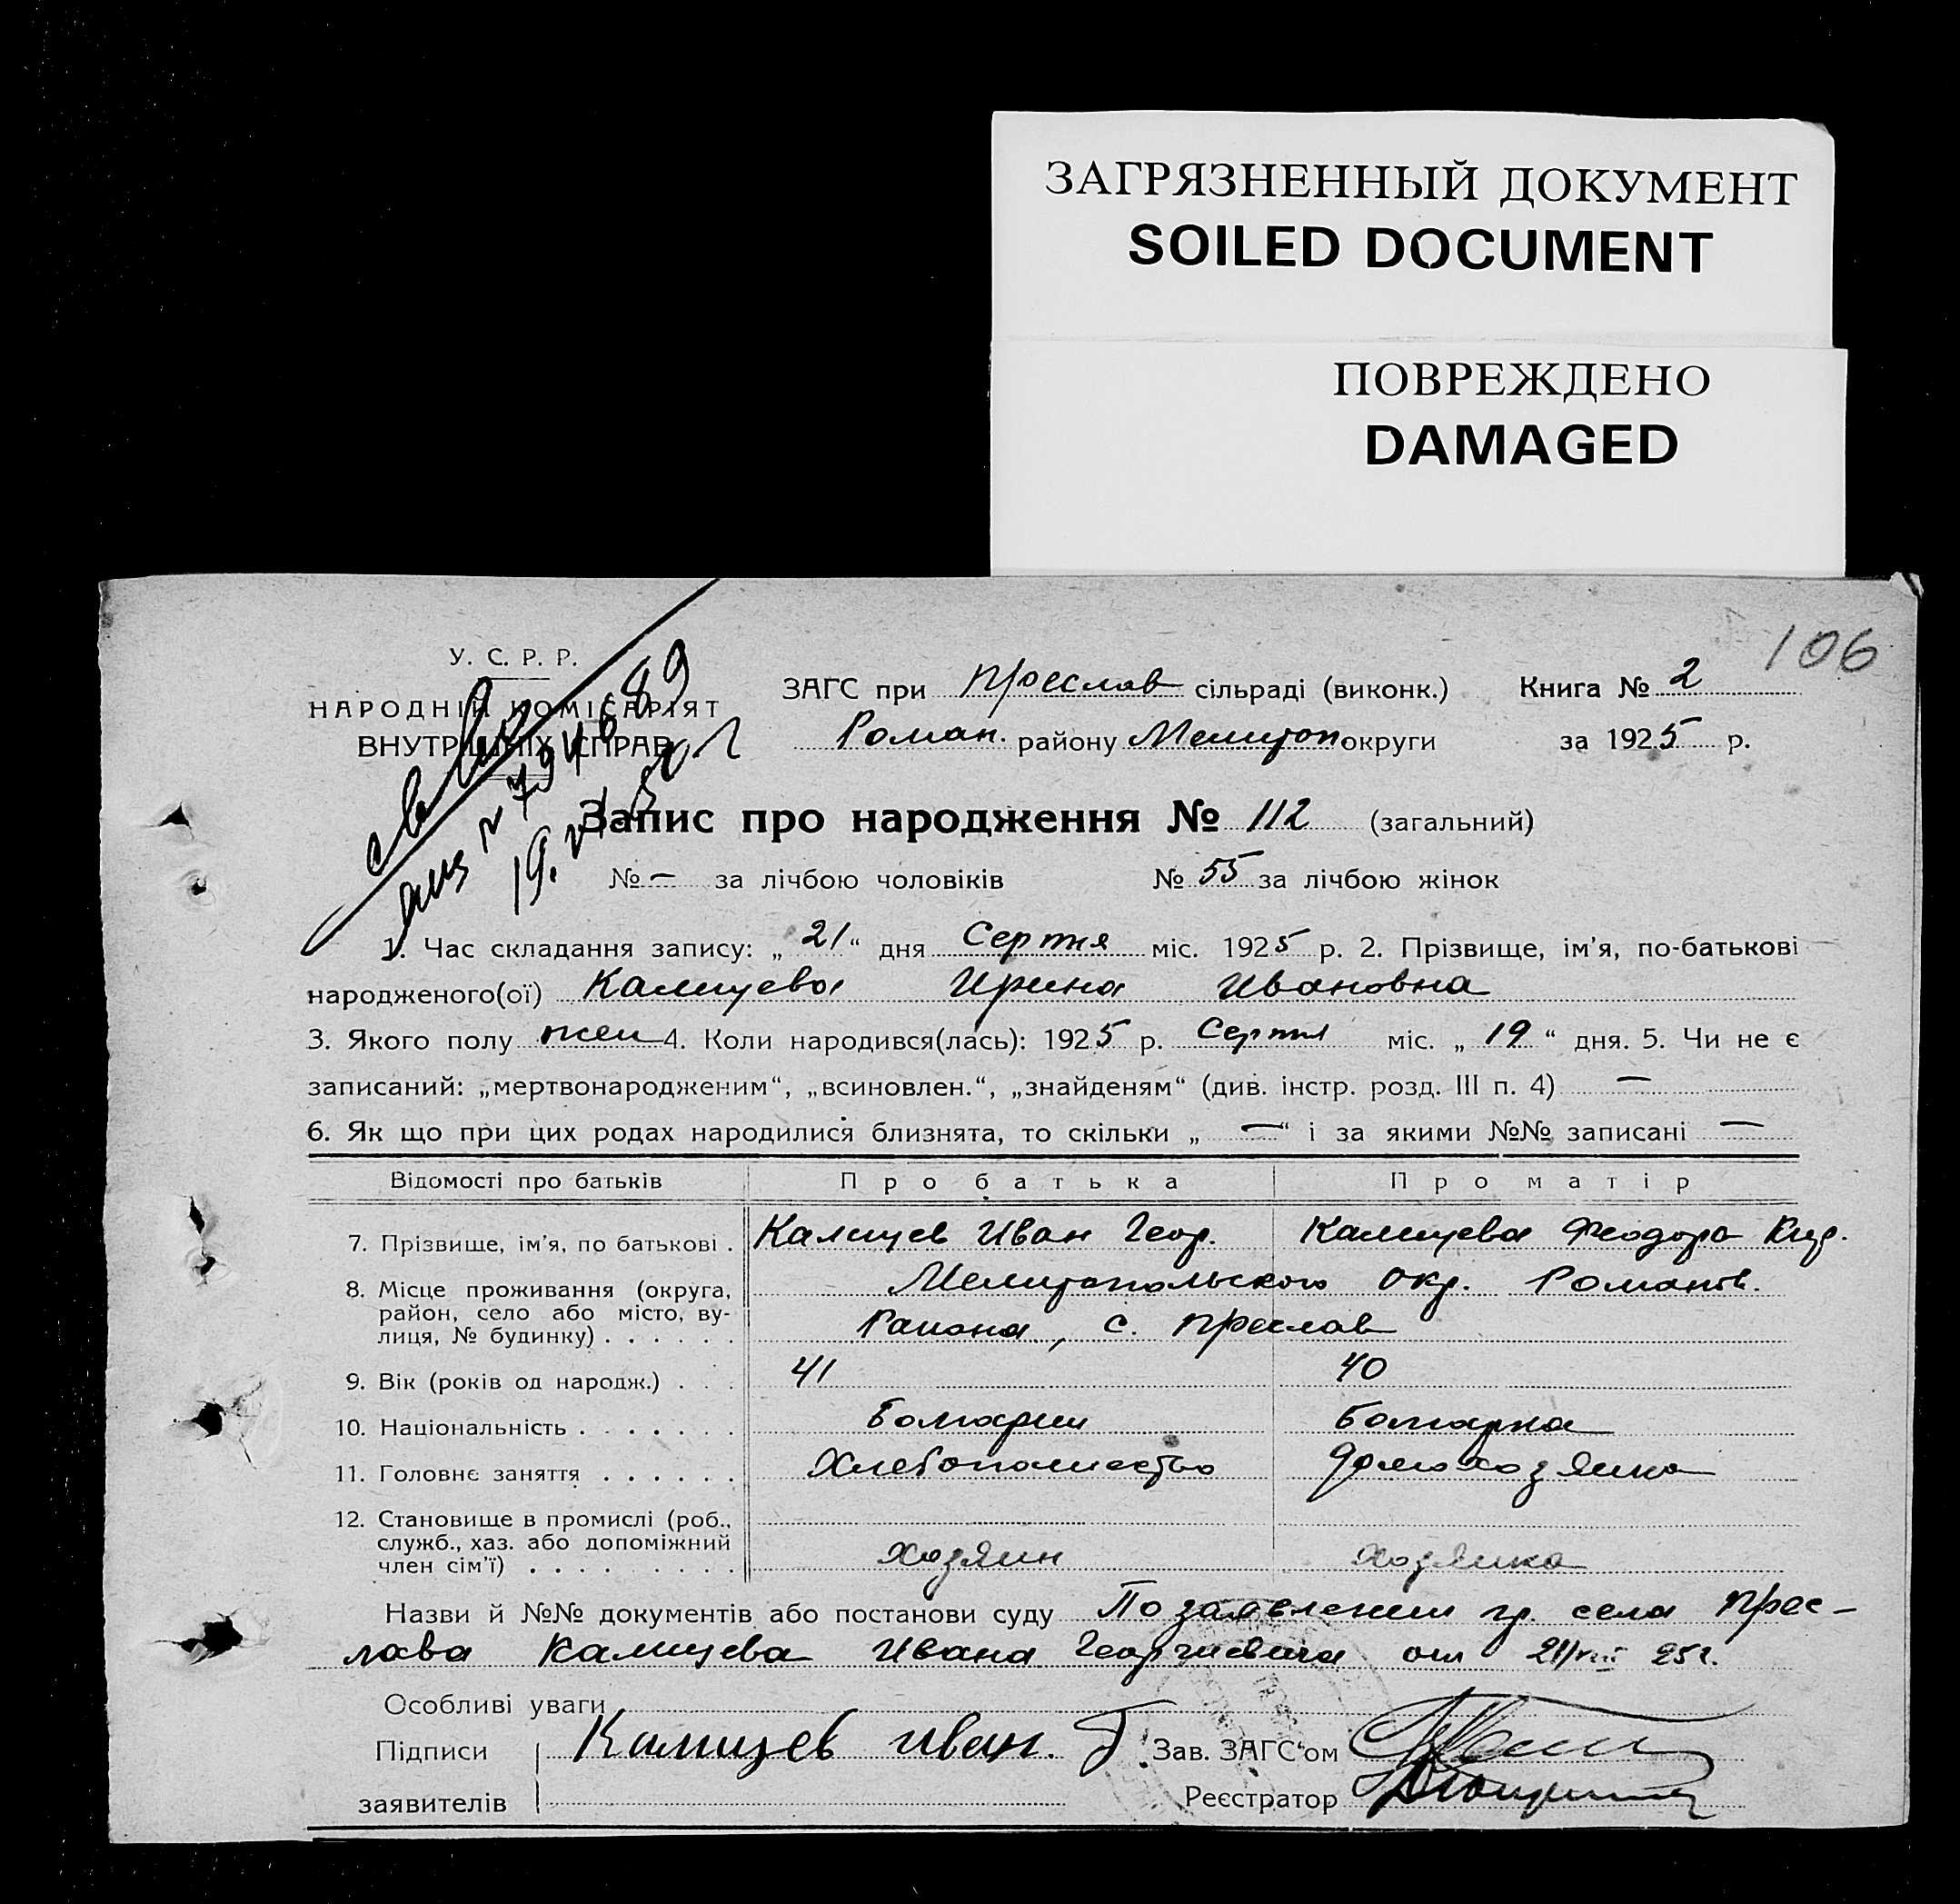 ЗАГРЯЗНЕННЫЙ ДОКУМЕНТ
SOILED DOCUMENT
ПОВРЕЖДЕНО
DAMAGED
106
У. С. Р. Р.
НАРОДНІЙ КОМІСАРІЯТ
ВНУТРІШНІХ СПРАВ
ЗАГС при Преслав сільраді (виконк.) Книга № 2
Роман. району Мелитоп округи за 1925 р.
Запис про народження № 112 (загальний)
№ — за лічбою чоловіків № 55 за лічбою жінок
1. Час складання запису: „ 21 “ дня Серпня міс. 1925 р. 2. Прізвище, ім'я, по-батькові
народженого(ої) Калицева Ирина Ивановна
3. Якого полу жен 4. Коли народився(лась): 1925 р. Серпня міс. „ 19 “ дня. 5. Чи не є
записаний: „мертвонародженим“, „всиновлен.“, „знайденям“ (див. інстр. розд. III п. 4) —
6. Як що при цих родах народилися близнята, то скільки „ — “ і за якими №№ записані —
Відомості про батьків Про батька Про матір
7. Прізвище, ім'я, по батькові . Калицев Иван Геор. Калицева Феодора Кир.
8. Місце проживання (округа, Мелитопольского Окр. Романов.
район, село або місто, ву-
лиця, № будинку) . . . . . . Района, с. Преслав
9. Вік (років од народж.) . . . 41 40
10. Національність . . . . . . . Болгарин Болгарка
11. Головнє заняття . . . . . . Хлебопашество домохозяйка
12. Становище в промислі (роб.,
служб., хаз. або допоміжний
член сім'ї) . . . . . . . . . хозяин хозяйка
Назви й №№ документів або постанови суду По заявлении гр. села Прес-
лава Калицева Ивана Георгиевича от 21/VIII 25г.
Особливі уваги
Підписи Калицев Иван. Г. Зав. ЗАГС'ом
заявителів Реєстратор